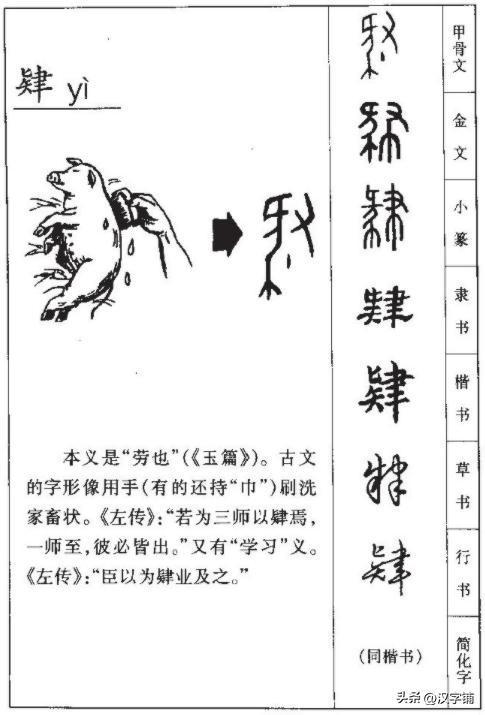 肄 yì
甲骨文
金文
小篆
隶书
肄
楷书
肄
草书
行书
肄
简化字
(同楷书)
本义是“劳也”(《玉篇》)。古文
的字形像用手(有的还持“巾”)刷洗
家畜状。《左传》：“若为三师以肄焉，
一师至，彼必皆出。”又有“学习”义。
《左传》：“臣以为肄业及之。”
头条 @汉字铺